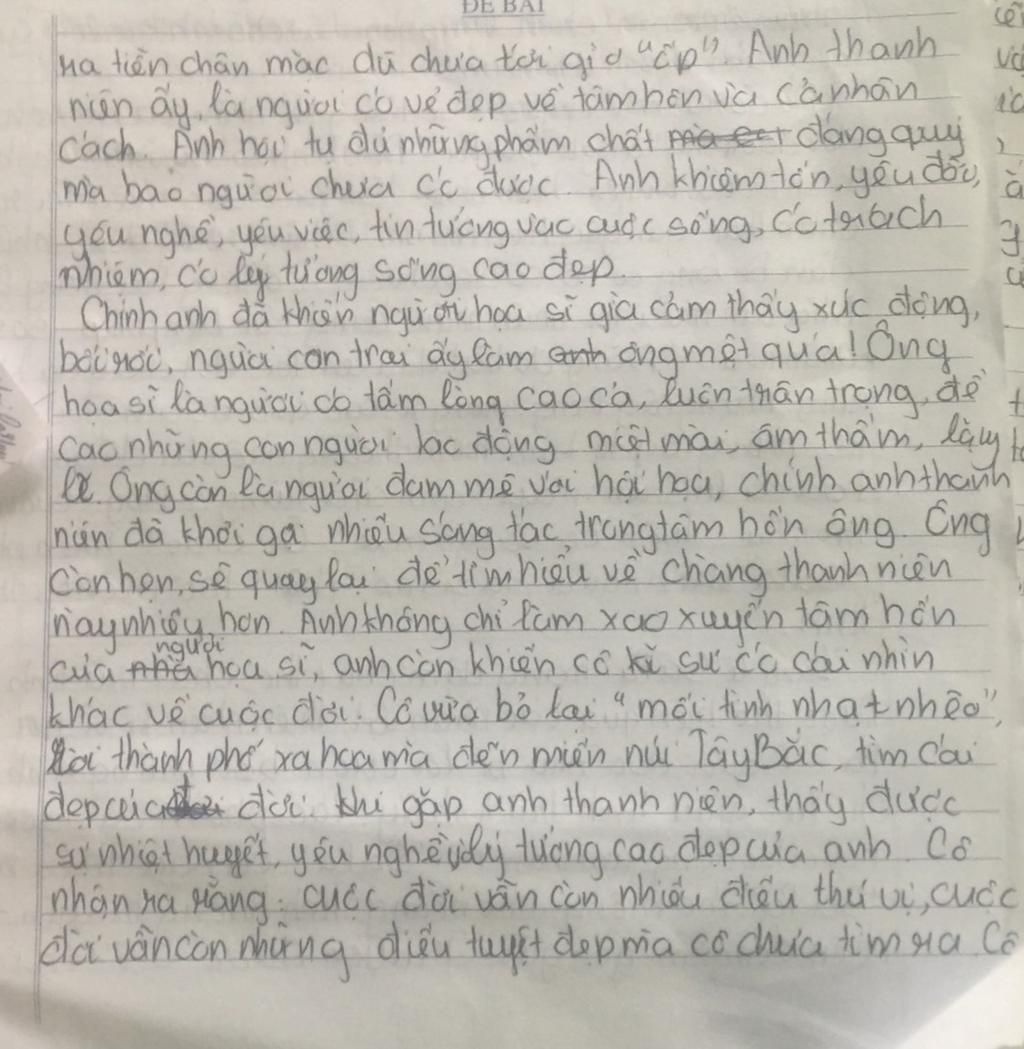 ĐỀ BÀI
ra tiễn chân mặc dù chưa tới giờ "ốp". Anh thanh
niên ấy, là người có vẻ đẹp về tâm hồn và cả nhân
cách. Anh hội tụ đủ những phẩm chất đáng quý
mà bao người chưa có được. Anh khiêm tốn, yêu đời,
yêu nghề, yêu việc, tin tưởng vào cuộc sống, có trách
nhiệm, có lý tưởng sống cao đẹp.
Chính anh đã khiến người họa sĩ già cảm thấy xúc động,
bối rối, người con trai ấy làm ông mệt quá! Ông
họa sĩ là người có tấm lòng cao cả, luôn trân trọng, đề
cao những con người lao động miệt mài, âm thầm, lặng
lẽ. Ông còn là người đam mê với hội họa, chính anh thanh
niên đã khơi gợi nhiều sáng tác trong tâm hồn ông. Ông
còn hẹn, sẽ quay lại để tìm hiểu về chàng thanh niên
này nhiều hơn. Anh không chỉ làm xao xuyến tâm hồn
của người họa sĩ, anh còn khiến cô kĩ sư có cái nhìn
khác về cuộc đời. Cô vừa bỏ lại "mối tình nhạt nhẽo",
rời thành phố xa hoa mà đến miền núi Tây Bắc, tìm cái
đẹp của đời. Khi gặp anh thanh niên, thấy được
sự nhiệt huyết, yêu nghề, lý tưởng cao đẹp của anh. Cô
nhận ra rằng: cuộc đời vẫn còn nhiều điều thú vị, cuộc
đời vẫn còn những điều tuyệt đẹp mà cô chưa tìm ra. Cô